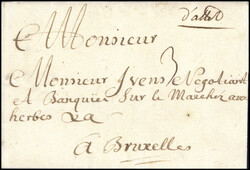 d'alost
A Monsieur
A Monsieur Yvens Negotiant
et Banquier Sur le Marchez aux
herbes &a
à Bruxelles